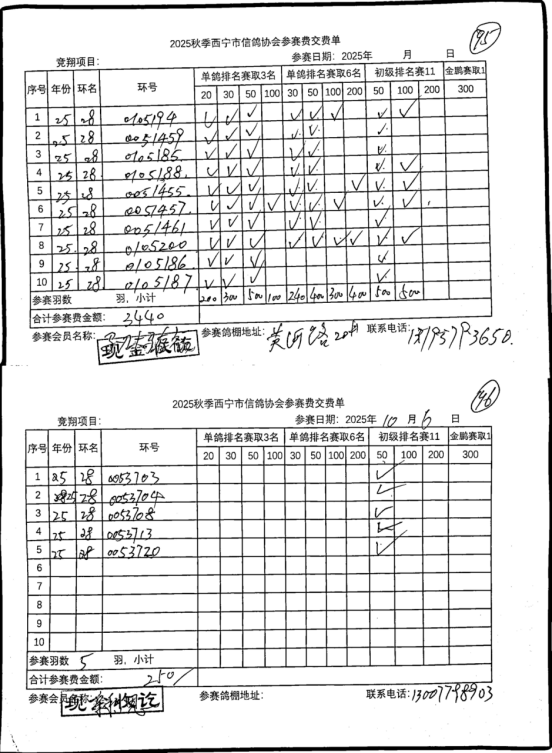 95
2025秋季西宁市信鸽协会参赛费交费单
竞翔项目: 参赛日期: 2025年 月 日
序号 年份 环名 环号 单鸽排名赛取3名 单鸽排名赛取6名 初级排名赛11 金鹏赛取1
20 30 50 100 30 50 100 200 50 100 200 300
1 25 28 0105194 ✓ ✓ ✓ ✓ ✓ ✓ ✓ ✓
2 25 28 0051459 ✓ ✓ ✓ ✓ ✓ ✓
3 25 28 0105185 ✓ ✓ ✓ ✓ ✓ ✓
4 25 28 0105188 ✓ ✓ ✓ ✓ ✓ ✓ ✓
5 25 28 0051455 ✓ ✓ ✓ ✓ ✓ ✓ ✓ ✓
6 25 28 0051457 ✓ ✓ ✓ ✓ ✓ ✓ ✓ ✓ ✓
7 25 28 0051461 ✓ ✓ ✓ ✓ ✓ ✓
8 25 28 0105200 ✓ ✓ ✓ ✓ ✓ ✓ ✓ ✓ ✓
9 25 28 0105186 ✓ ✓ ✓ ✓
10 25 28 0105187 ✓ ✓ ✓ ✓
参赛羽数 羽, 小计 200 300 500 100 240 400 300 400 500 500
合计参赛费金额: 3440
参赛会员名称: 参赛鸽棚地址: 联系电话:
96
2025秋季西宁市信鸽协会参赛费交费单
竞翔项目: 参赛日期: 2025年 10 月 6 日
序号 年份 环名 环号 单鸽排名赛取3名 单鸽排名赛取6名 初级排名赛11 金鹏赛取1
20 30 50 100 30 50 100 200 50 100 200 300
1 25 28 0053703 ✓
2 25 28 0053704 ✓
3 25 28 0053708 ✓
4 25 28 0053713 ✓
5 25 28 0053720 ✓
6
7
8
9
10
参赛羽数 5 羽, 小计
合计参赛费金额: 250/
参赛会员名称: 参赛鸽棚地址: 联系电话: 13007798903